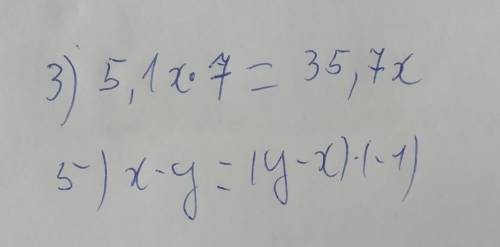 3) 5,1x·7 = 35,7x
5) x-y = (y-x)·(-1)